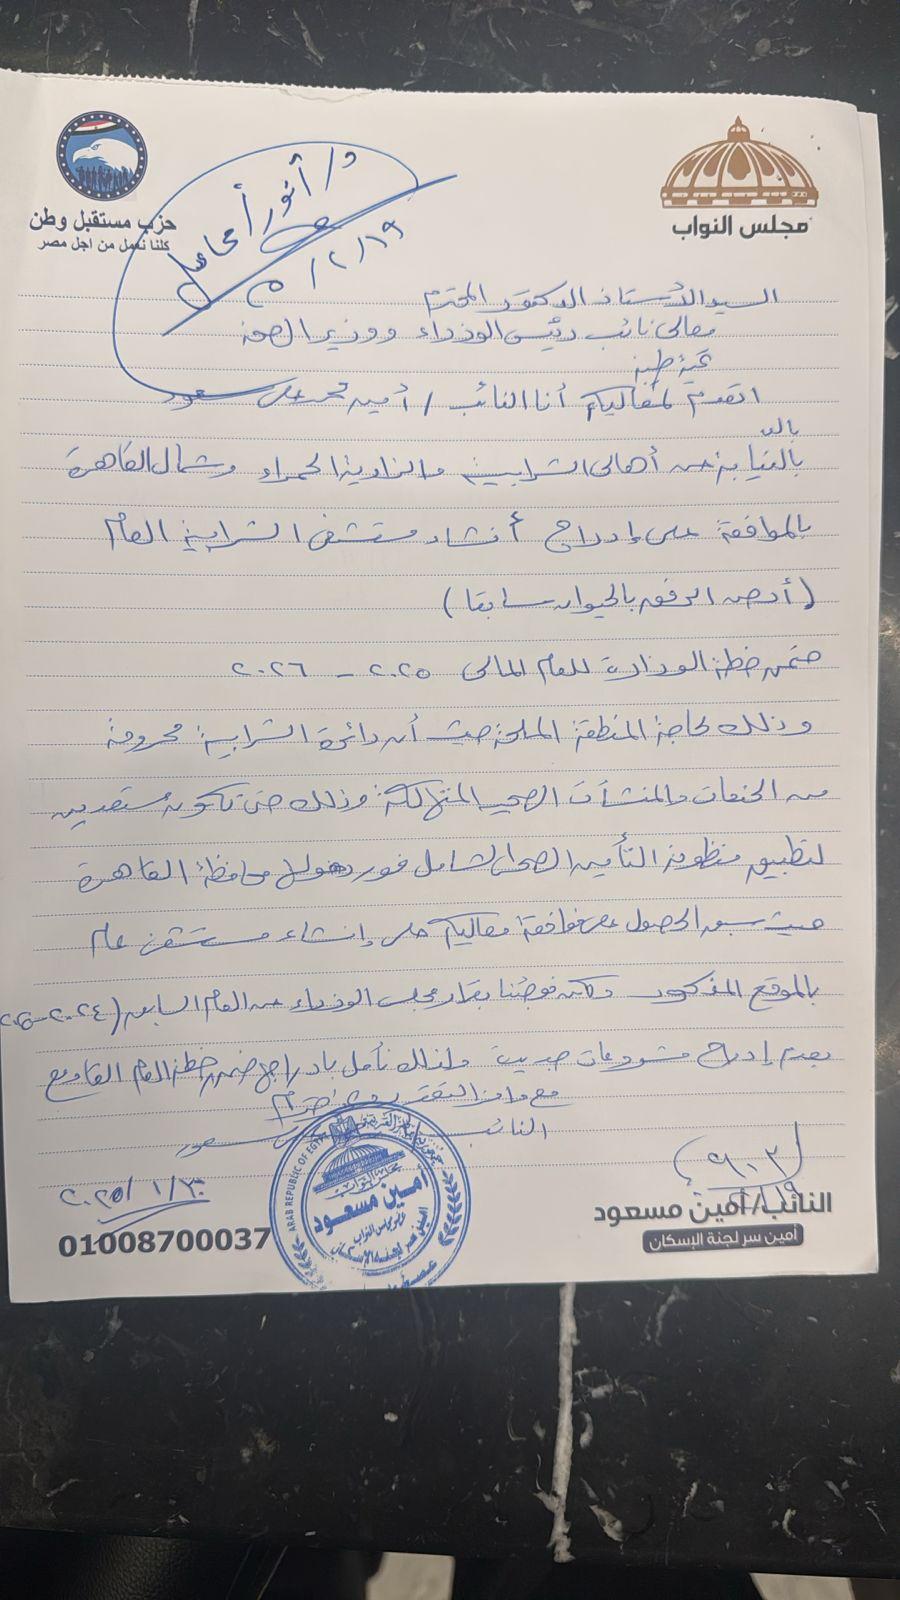 مجلس النواب
حزب مستقبل وطن
كلنا نعمل من اجل مصر
د/ أنور
٢/١٩
السيد الأستاذ الدكتور المحترم
معالى نائب رئيس الوزراء ووزير الصحة
تحية طيبة
اتقدم لمعاليكم أنا النائب / أمين محمد مسعود
بالنيابة عن أهالى الشرابية والزاوية الحمراء وشمال القاهرة
بالموافقة على إدراج أنشاء مستشفى الشرابية العام
(أرض الرفق بالحيوان سابقا)
ضمن خطة الوزارة للعام المالى ٢٠٢٥ - ٢٠٢٦
وذلك لحاجة المنطقة الملحة حيث أن دائرة الشرابية محرومة
من الخدمات والمنشآت الصحية المتهالكة وذلك حتى نكون مستعدين
لتطبيق منظومة التأمين الصحى الشامل فور دخول محافظة القاهرة
حيث سبق الحصول على موافقة معاليكم على إنشاء مستشفى عام
بالموقع المذكور ولكن فوجئنا بقرار مجلس الوزراء عن العام السابق (٢٠٢٤-
بعدم إدراج مشروعات جديدة ولذلك نأمل بادراجها ضمن خطة العام القادم
مع وافر التقدير
النائب
٢٠٢٥/١/٣٠
01008700037
ARAB REPUBLIC OF EGYPT
مجلس النواب
أمين مسعود
عضو مجلس النواب
أمين سر لجنة الإسكان
النائب/ أمين مسعود
أمين سر لجنة الإسكان